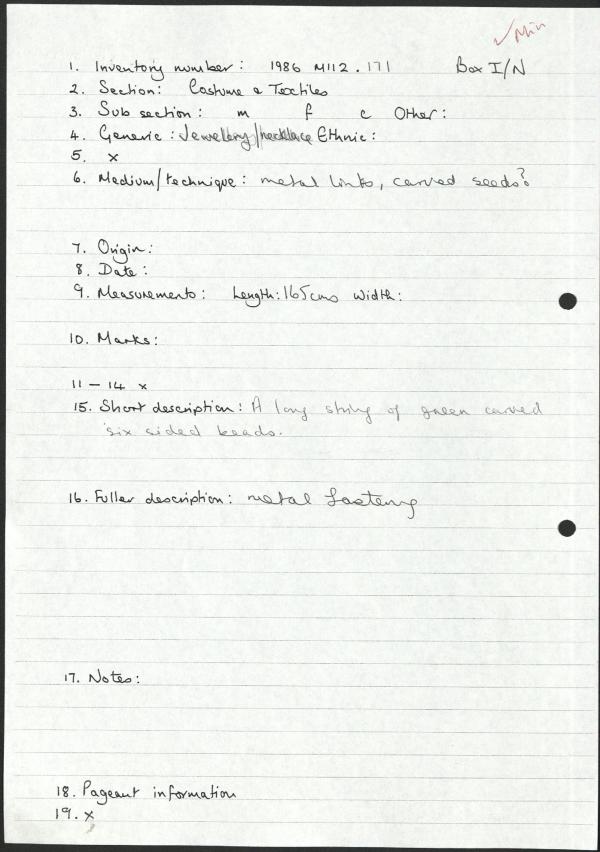 ✓ Min
1. Inventory number: 1986 M112.171 Box I/N
2. Section: Costume & Textiles
3. Sub section: m f c Other:
4. Generic: Jewellery/necklace Ethnic:
5. x
6. Medium/technique: metal links, carved seeds?
7. Origin:
8. Date:
9. Measurements: Length: 165cms Width:
10. Marks:
11 – 14 x
15. Short description: A long string of green carved
six sided beads.
16. Fuller description: metal fastening
17. Notes:
18. Pageant information
19. x